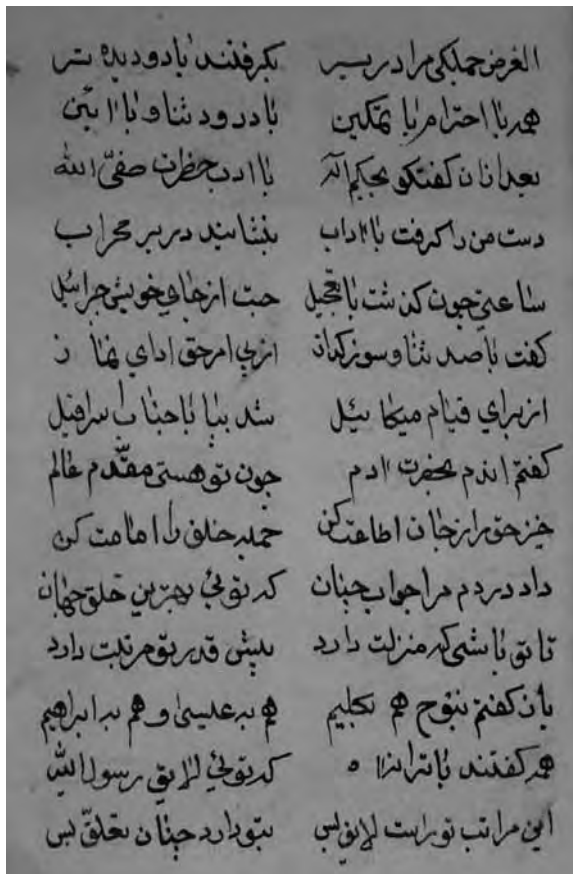 الغرض جملکی مرا در بر بگرفتند با دو دیده تر
همه با احترام با تمکین با درود و ثنا و با آیین
بعد ازان گفتکو بحکم اله با ادب حضرت صفی الله
دست من را گرفت با آداب بنشانید در بر محراب
ساعتی چون گذشت با تعجیل جست از جای خویش جبرائیل
گفت با صد ثنا و سوز و گداز از پی امر حق ادای نماز
از برای قیام میکائیل شد بپا با جناب اسرافیل
گفتم اندم بحضرت ادم چون تو هستی مقدم عالم
خیز حق را ز جان اطاعت کن جمله خلق را امامت کن
داد در دم مرا جواب چنان که توئی بهترین خلق جهان
تا تو باشی که منزلت دارد پیش قدر تو مرتبت دارد
باز گفتم بنوح هم بکلیم هم به عیسی و هم به ابراهیم
همه گفتند با تو این که توئی لایق رسول الله
این مراتب تو راست لایق بس بتو دارد چنان تعلق بس